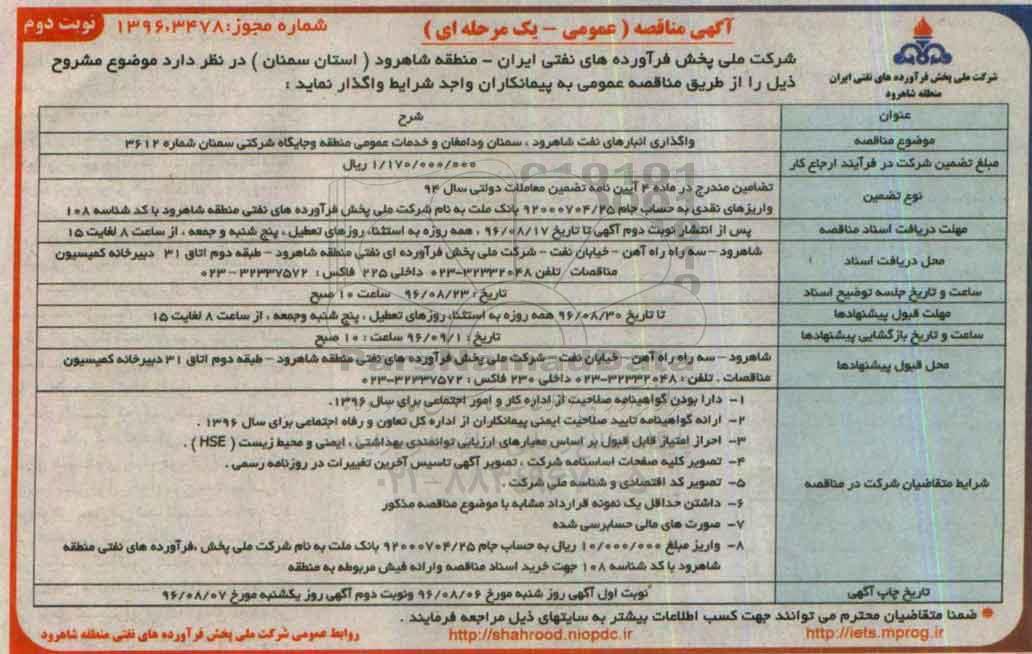 نوبت دوم
شماره مجوز: ۱۳۹۶،۳۴۷۸
آگهی مناقصه ( عمومی – یک مرحله ای )
شرکت ملی پخش فرآورده های نفتی ایران
منطقه شاهرود
شرکت ملی پخش فرآورده های نفتی ایران – منطقه شاهرود ( استان سمنان ) در نظر دارد موضوع مشروح
ذیل را از طریق مناقصه عمومی به پیمانکاران واجد شرایط واگذار نماید :
عنوان شرح
موضوع مناقصه واگذاری انبارهای نفت شاهرود ، سمنان ودامغان و خدمات عمومی منطقه وجایگاه شرکتی سمنان شماره ۳۶۱۲
مبلغ تضمین شرکت در فرآیند ارجاع کار ۱/۱۷۰/۰۰۰/۰۰۰ ریال
نوع تضمین
تضامین مندرج در ماده ۴ آیین نامه تضمین معاملات دولتی سال ۹۴
واریزهای نقدی به حساب جام ۹۲۰۰۰۷۰۴/۲۵ بانک ملت به نام شرکت ملی پخش فرآورده های نفتی منطقه شاهرود با کد شناسه ۱۰۸
مهلت دریافت اسناد مناقصه پس از انتشار نوبت دوم آگهی تا تاریخ ۹۶/۰۸/۱۷ ، همه روزه به استثناء روزهای تعطیل ، پنج شنبه و جمعه ، از ساعت ۸ لغایت ۱۵
محل دریافت اسناد
شاهرود – سه راه راه آهن – خیابان نفت – شرکت ملی پخش فرآورده ای نفتی منطقه شاهرود – طبقه دوم اتاق ۳۱ دبیرخانه کمیسیون
مناقصات تلفن ۳۲۳۳۲۰۴۸-۰۲۳ داخلی ۲۲۵ فاکس : ۳۲۳۳۷۵۷۲ – ۰۲۳
ساعت و تاریخ جلسه توضیح اسناد تاریخ : ۹۶/۰۸/۲۳ ساعت ۱۰ صبح
مهلت قبول پیشنهادها تا تاریخ ۹۶/۰۸/۳۰ همه روزه به استثناء روزهای تعطیل ، پنج شنبه وجمعه ، از ساعت ۸ لغایت ۱۵
ساعت و تاریخ بازگشایی پیشنهادها تاریخ : ۹۶/۰۹/۱ ساعت : ۱۰ صبح
محل قبول پیشنهادها
شاهرود – سه راه راه آهن – خیابان نفت – شرکت ملی پخش فرآورده های نفتی منطقه شاهرود – طبقه دوم اتاق ۳۱ دبیرخانه کمیسیون
مناقصات . تلفن : ۳۲۳۳۲۰۴۸-۰۲۳ داخلی ۲۳۰ فاکس : ۳۲۳۳۷۵۷۲-۰۲۳
شرایط متقاضیان شرکت در مناقصه
۱- دارا بودن گواهینامه صلاحیت از اداره کار و امور اجتماعی برای سال ۱۳۹۶.
۲- ارائه گواهینامه تایید صلاحیت ایمنی پیمانکاران از اداره کل تعاون و رفاه اجتماعی برای سال ۱۳۹۶ .
۳- احراز امتیاز قابل قبول بر اساس معیارهای ارزیابی توانمندی بهداشتی ، ایمنی و محیط زیست ( HSE ) .
۴- تصویر کلیه صفحات اساسنامه شرکت ، تصویر آگهی تاسیس آخرین تغییرات در روزنامه رسمی .
۵- تصویر کد اقتصادی و شناسه ملی شرکت .
۶- داشتن حداقل یک نمونه قرارداد مشابه با موضوع مناقصه مذکور
۷- صورت های مالی حسابرسی شده
۸- واریز مبلغ ۱۰/۰۰۰/۰۰۰ ریال به حساب جام ۹۲۰۰۰۷۰۴/۲۵ بانک ملت به نام شرکت ملی پخش ،فرآورده های نفتی منطقه
شاهرود با کد شناسه ۱۰۸ جهت خرید اسناد مناقصه وارائه فیش مربوطه به منطقه
تاریخ چاپ آگهی نوبت اول آگهی روز شنبه مورخ ۹۶/۰۸/۰۶ ونوبت دوم آگهی روز یکشنبه مورخ ۹۶/۰۸/۰۷
ضمنا متقاضیان محترم می توانند جهت کسب اطلاعات بیشتر به سایتهای ذیل مراجعه فرمایند .
http://iets.mprog.ir http://shahrood.niopdc.ir روابط عمومی شرکت ملی پخش فرآورده های نفتی منطقه شاهرود